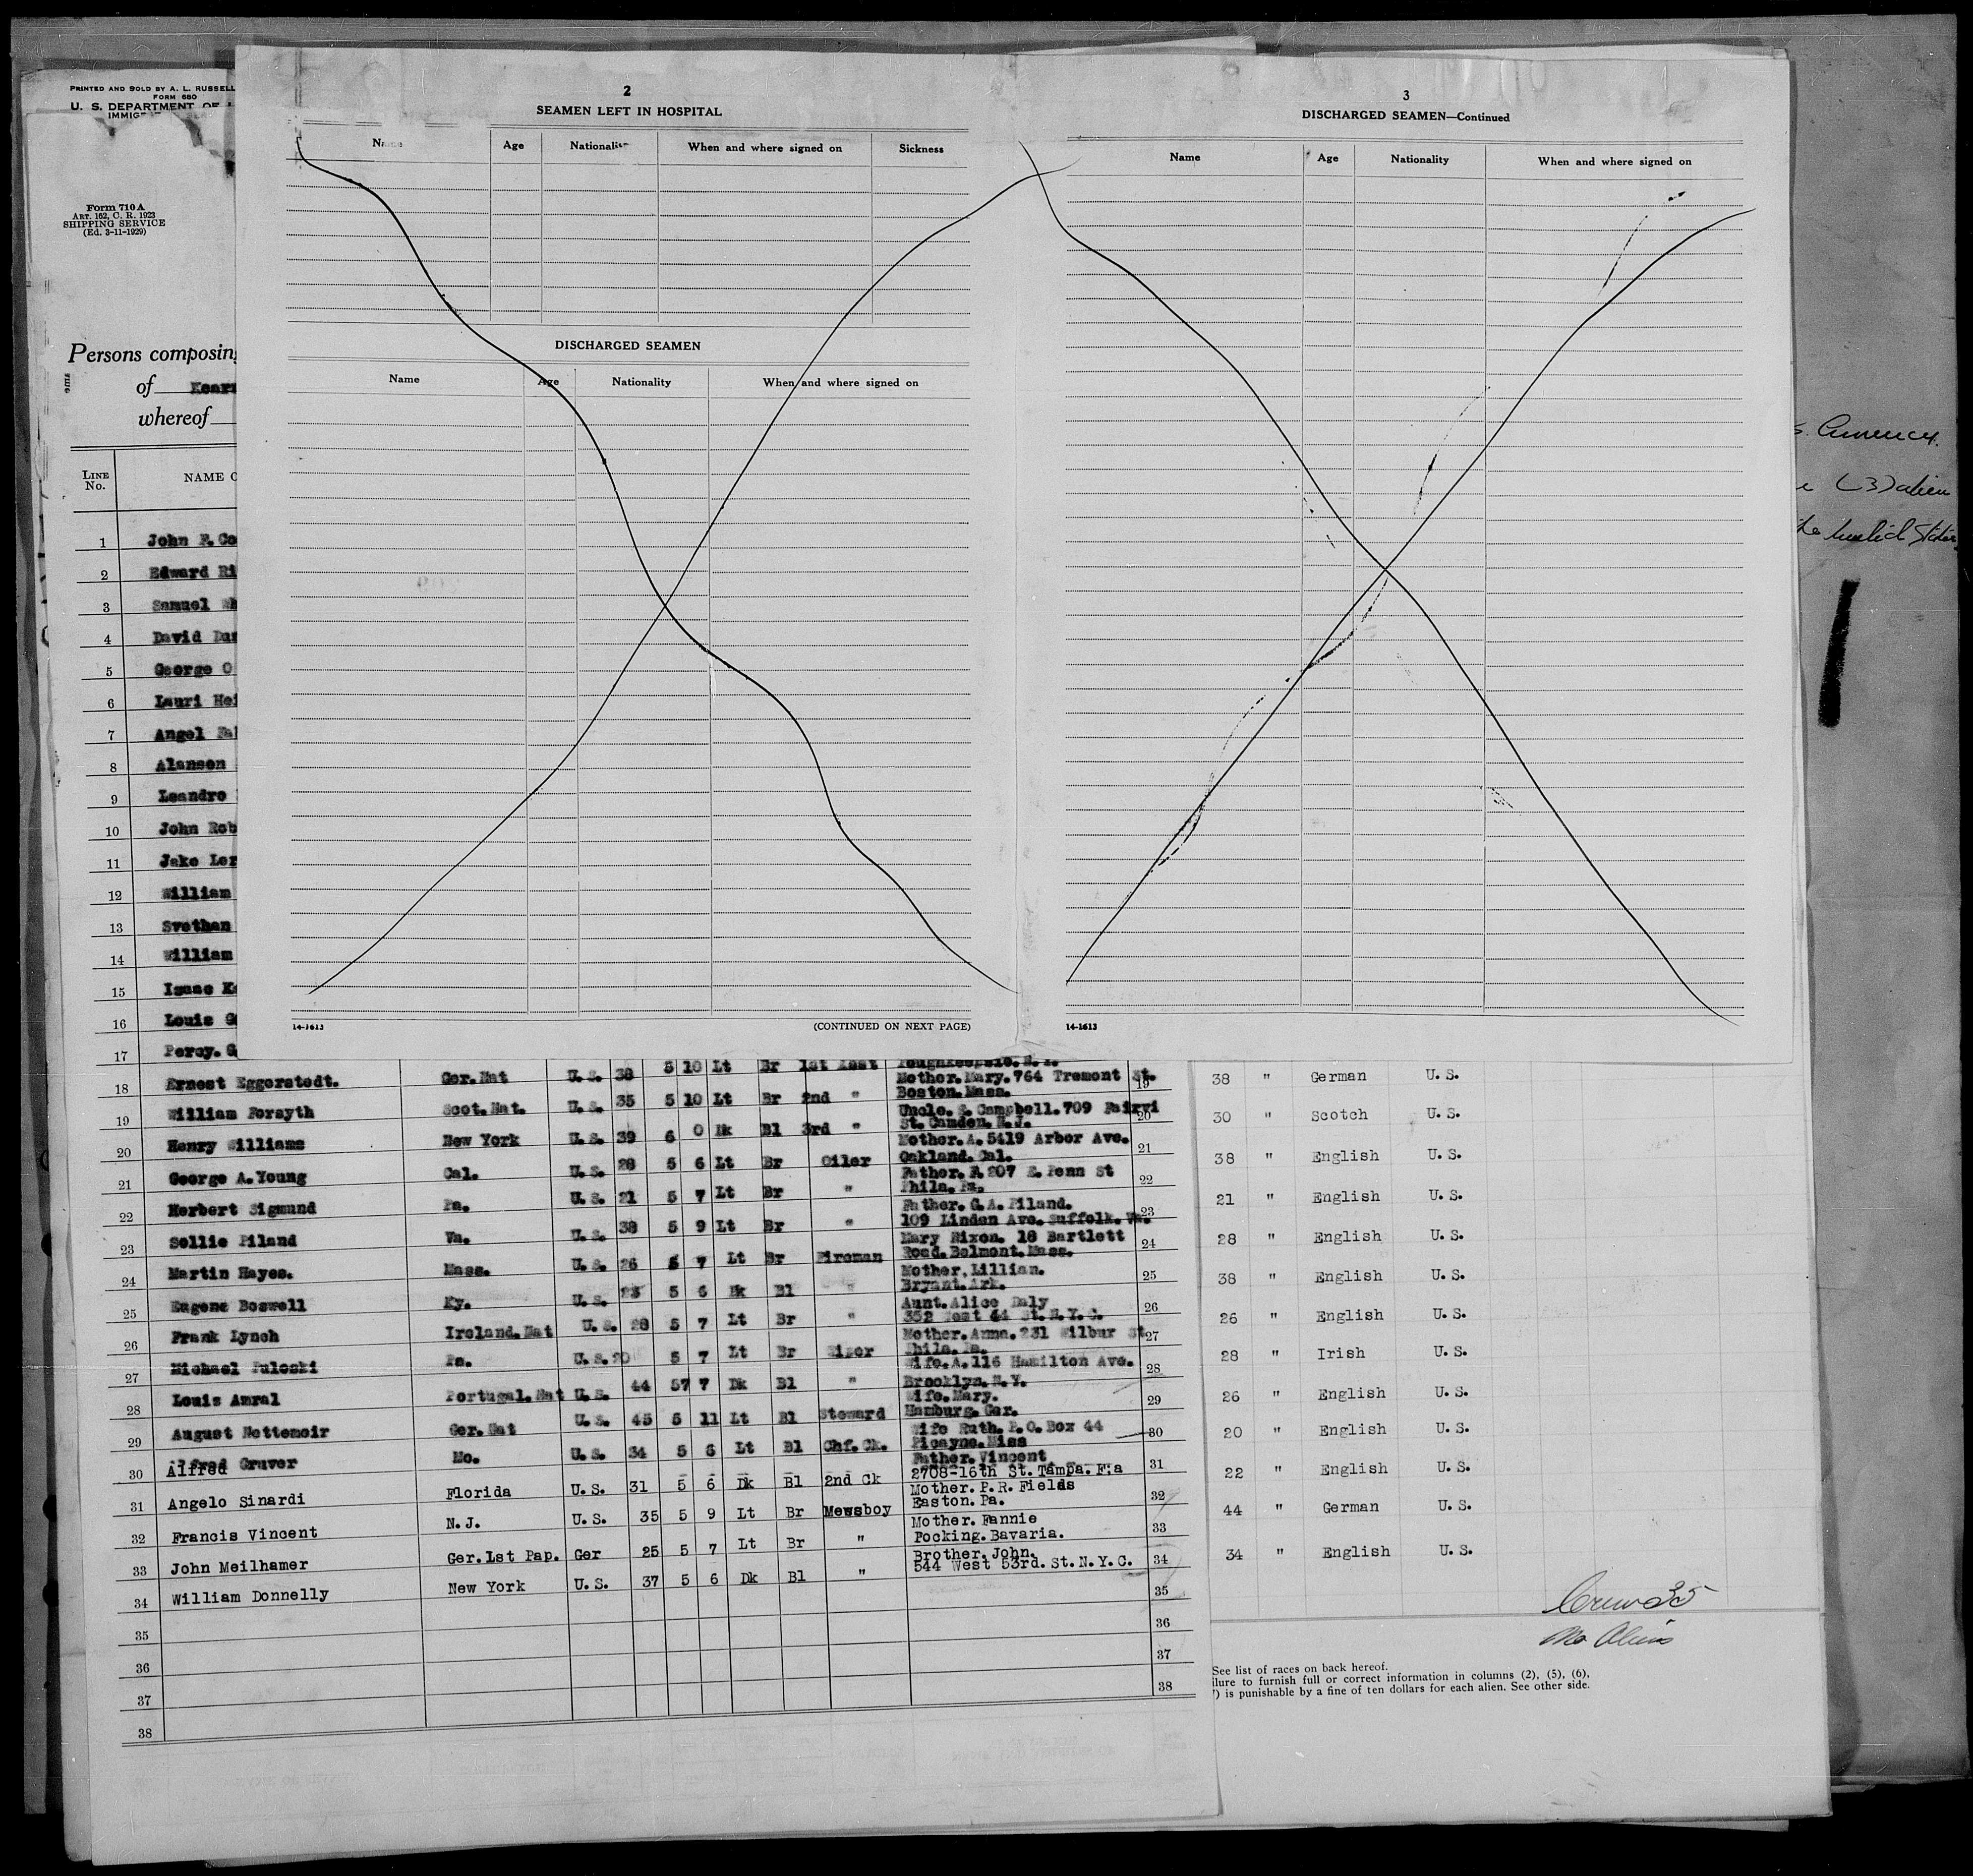 PRINTED AND SOLD BY A. L. RUSSELL
FORM 680
U. S. DEPARTMENT OF
Form 710 A
ART. 162, C. R. 1923
SHIPPING SERVICE
(Ed. 3-11-1929)
Persons composing
of Kear
whereof
LINE No.
NAME O
1 John F. Co
2 Edward Ri
3 Samuel Wh
4 David Dun
5 George O
6 Lauri Hei
7 Angel
8 Alanson
9 Leandro
10 John Rob
11 Jake Ler
12 William
13 Svethan
14 William
15 Isaac K
16 Louis G
17 Percy. G
2
SEAMEN LEFT IN HOSPITAL
Name Age Nationality When and where signed on Sickness
DISCHARGED SEAMEN
Name Age Nationality When and where signed on
14-1613 (CONTINUED ON NEXT PAGE)
3
DISCHARGED SEAMEN—Continued
Name Age Nationality When and where signed on
14-1613
(3) alien
Poughkeepsie. N. Y.
18 Ernest Eggerstedt. Ger. Nat U. S. 38 5 10 Lt Br 1st Asst Mother. Mary. 764 Tremont St. 19
Boston. Mass.
19 William Forsyth Scot. Nat. U. S. 35 5 10 Lt Br 2nd " Uncle. S. Campbell. 709 Fairvi 20
St. Camden. N. J.
20 Henry Williams New York U. S. 39 6 0 Dk Bl 3rd " Mother. A. 5419 Arbor Ave. 21
Oakland. Cal.
21 George A. Young Cal. U. S. 28 5 6 Lt Br Oiler Father. F. 207 E. Penn St 22
Phila. Pa.
22 Herbert Sigmund Pa. U. S. 21 5 7 Lt Br " Father. G. A. Piland. 23
109 Linden Ave. Suffolk. Va.
23 Sollie Piland Va. U. S. 38 5 9 Lt Br " Mary Nixon. 18 Bartlett 24
Road. Belmont. Mass.
24 Martin Hayes. Mass. U. S. 26 5 7 Lt Br Fireman Mother. Lillian. 25
Bryant. Ark.
25 Eugene Boswell Ky. U. S. 23 5 6 Dk Bl " Aunt. Alice Daly 26
352 West 44 St. N. Y. C.
26 Frank Lynch Ireland. Nat U. S. 28 5 7 Lt Br " Mother. Anna. 231 Wilbur St 27
Phila. Pa.
27 Michael Puloski Pa. U. S. 20 5 7 Lt Br Wiper Wife. A. 116 Hamilton Ave. 28
Brooklyn. N. Y.
28 Louis Amral Portugal. Nat U. S. 44 57 7 Dk Bl " Wife. Mary. 29
Hamburg. Ger.
29 August Nottemeir Ger. Nat U. S. 45 5 11 Lt Bl Steward Wife Ruth. P. O. Box 44 30
Picayne. Miss
30 Alfred Gruver Mo. U. S. 34 5 6 Lt Bl Chf. Ck. Father. Vincent 31
2708-16th St. Tampa. Fla
31 Angelo Sinardi Florida U. S. 31 5 6 Dk Bl 2nd Ck Mother. P. R. Fields 32
Easton. Pa.
32 Francis Vincent N. J. U. S. 35 5 9 Lt Br Messboy Mother. Fannie 33
Pocking. Bavaria.
33 John Meilhamer Ger. 1st Pap. Ger 25 5 7 Lt Br " Brother. John. 34
544 West 53rd. St. N. Y. C.
34 William Donnelly New York U. S. 37 5 6 Dk Bl " 35
35 36
36 37
37 38
38
38 " German U. S.
30 " Scotch U. S.
38 " English U. S.
21 " English U. S.
28 " English U. S.
38 " English U. S.
26 " English U. S.
28 " Irish U. S.
26 " English U. S.
20 " English U. S.
22 " English U. S.
44 " German U. S.
34 " English U. S.
Crew 35
No Aliens
See list of races on back hereof.
ilure to furnish full or correct information in columns (2), (5), (6),
7) is punishable by a fine of ten dollars for each alien. See other side.